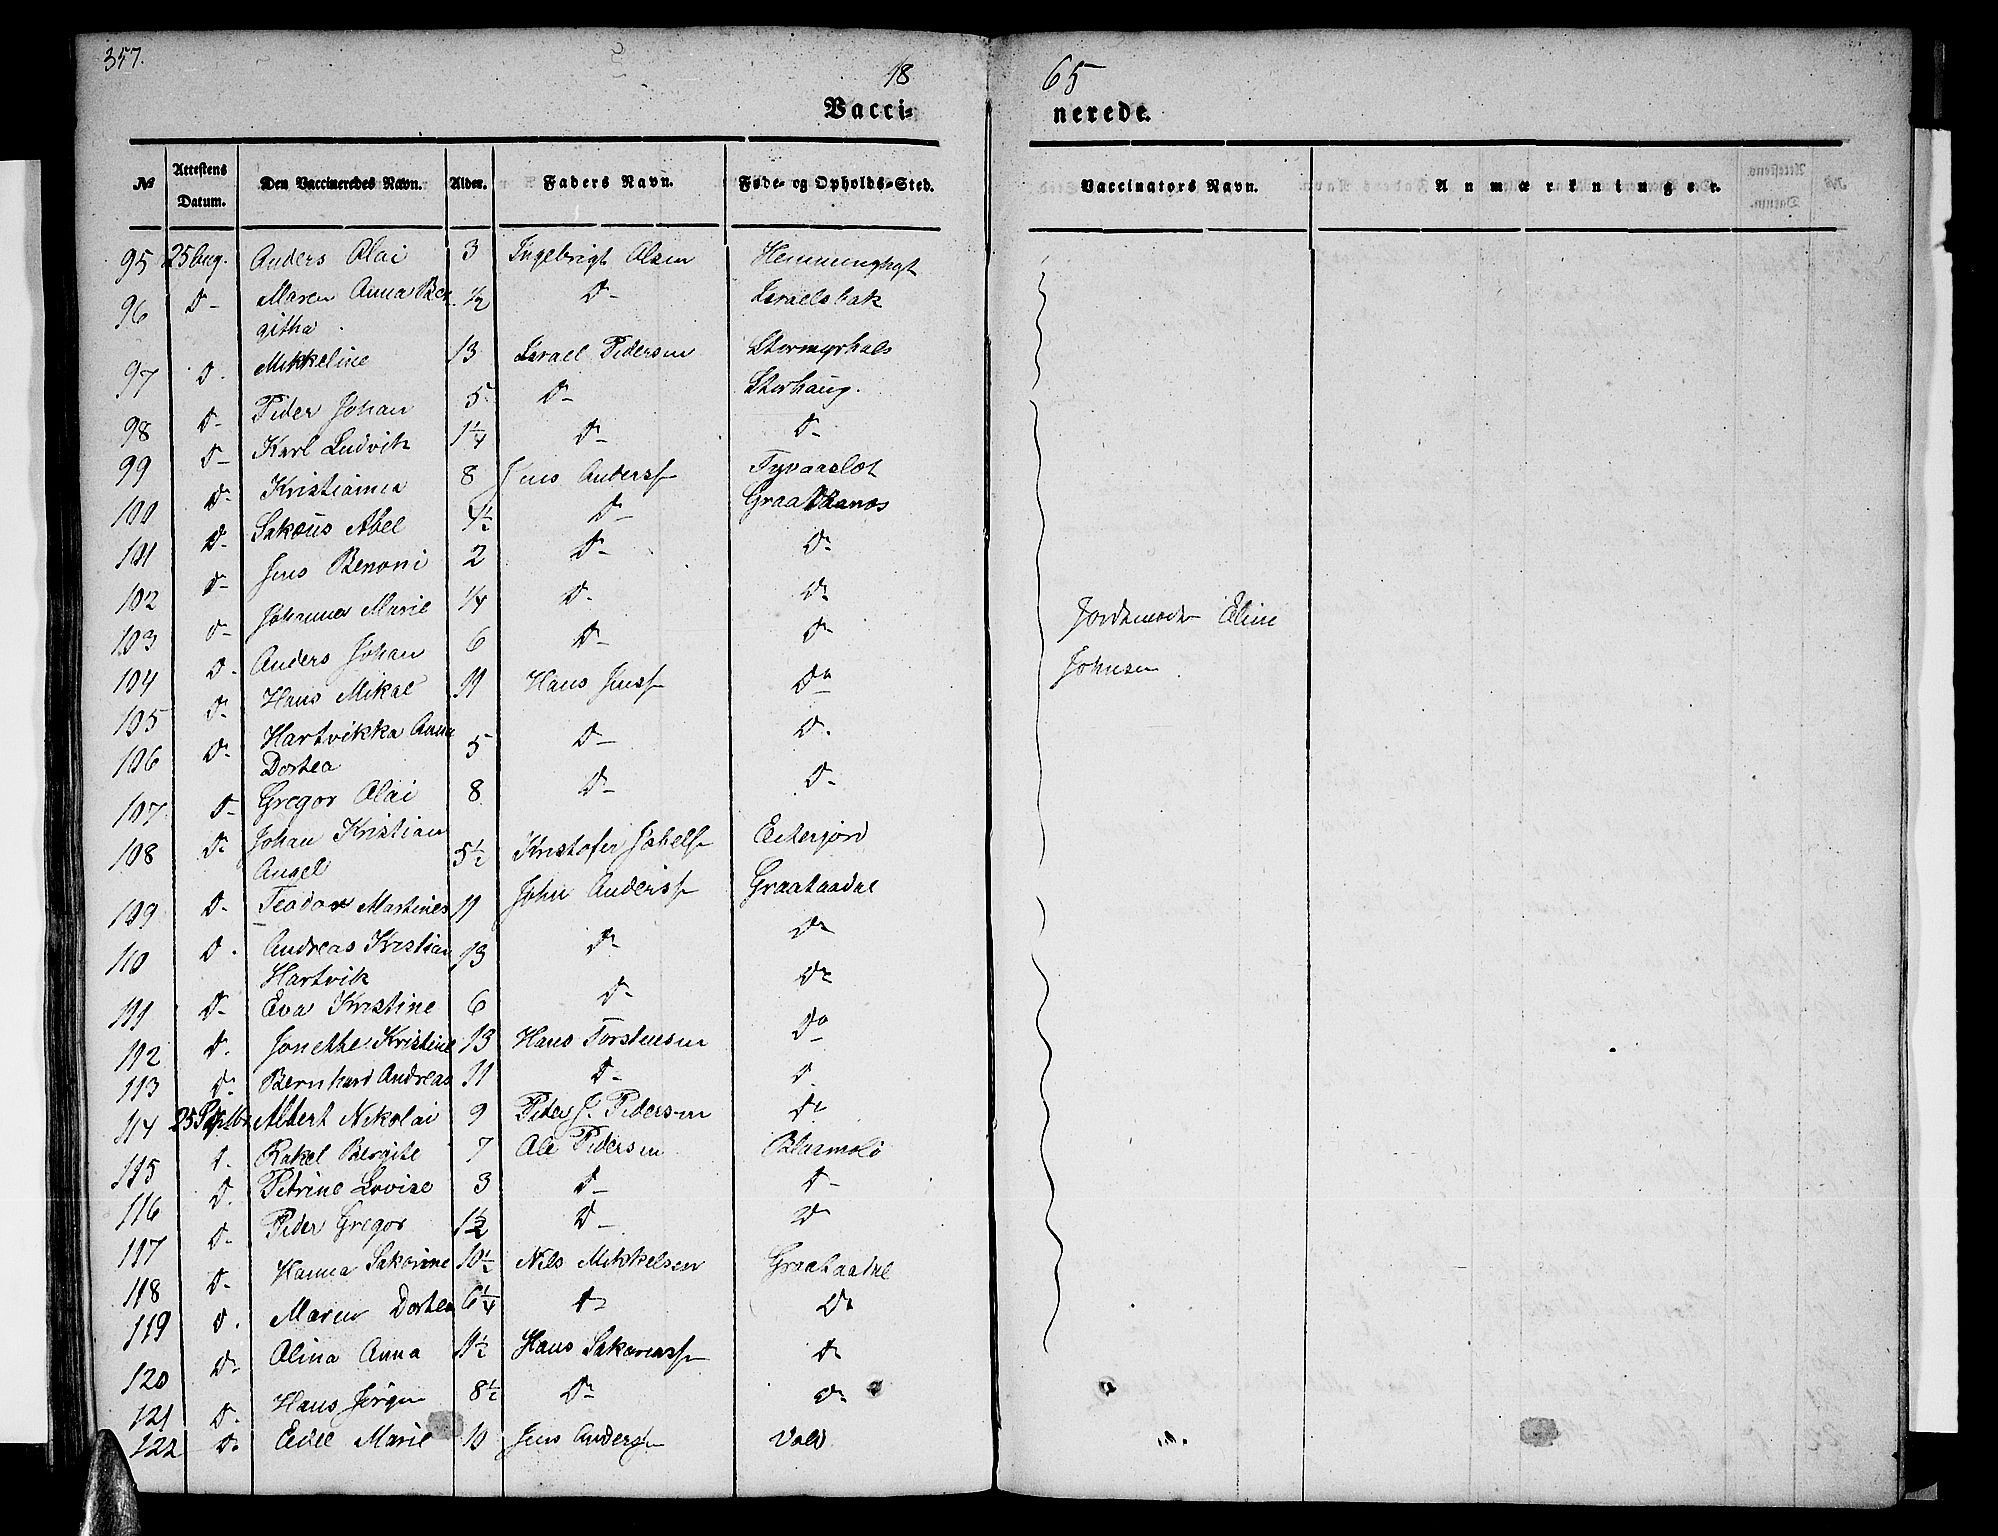 357.
18 65
Vacci- nerede.
№ Attestens Datum. Den Vaccineredes Navn. Alder. Faders Navn. Føde- og Opholds-Sted. Vaccinators Navn. Anmærkninger.
95 25 Aug. Anders Olai 3 Ingebrigt Olsen
96 D- Maren Anna Ber 1/2 D- Israelsbak
githa
97 D. Mikkeline 13 Israel Pedersen Stormyrhals
98 D- Peder Johan 5 D- Storhaug.
99 D- Karl Ludvik 1 1/4 D- D-
100 D- Kristianna 8 Jens Anders
101 D- Sakæus Abel 1 1/2 D-
102 D- Jens Benoni 2 D- D-
103 D- Johanna Marie 1/4 D- D-
104 D. Anders Johan 6 D- D-
105 D. Hans Mikal 11 Hans Jens Do
106 D- Hartvikka Anna 5 D- D.
Dortea
107 D- Gregor Olai 8 D- D-
108 D- Johan Kristian 5 1/2 Kristofer
Angel
109 D- Teodor Martines 11 John Anders Graataadal
110 D. Andreas Kristian 13 D- D-
Hartvik
111 D- Eva Kristine 6 D- D-
112 D. Jonethe Kristine 13 Hans Torstensen Do
113 D- Bernhard Andreas 11 D- D
114 25 Septbr Albert Nikolai 9 Peder J. Pedersen Do
115 D. Rakel Bergite 7 Ole Pedersen
116 D. Petrine Lovise 3 D- D-
117 D- Peder Gregor 1 1/2 D- D
118 D- Hanna Sakorine 10 1/2 Nils Mikkelsen Graataadal
119 D. Maren Dortea 6 1/4 D- D-
120 D- Alina Anna 1 1/2 Hans D-
121 D. Hans Jørgen 8 1/2 D- D-
122 D- Edel Marie 10 Jens Anders Vold
Jordemoder Eline
Johnsen